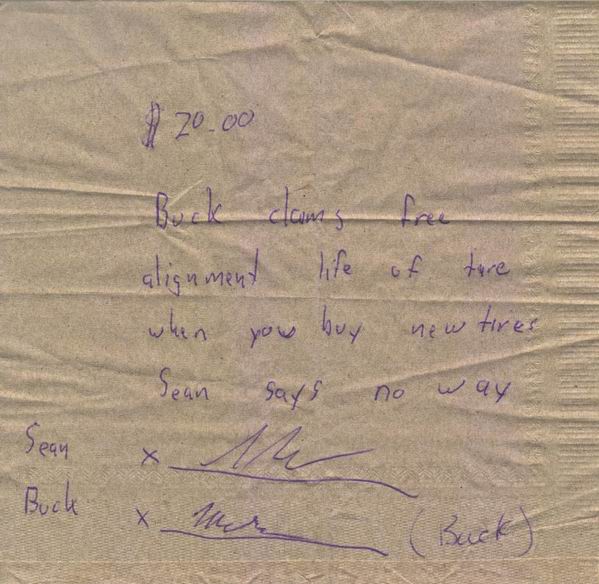 $ 20.00
Buck claims free
alignment life of ture
when you buy new tires
Sean says no way
Sean x
Buck x (Buck)